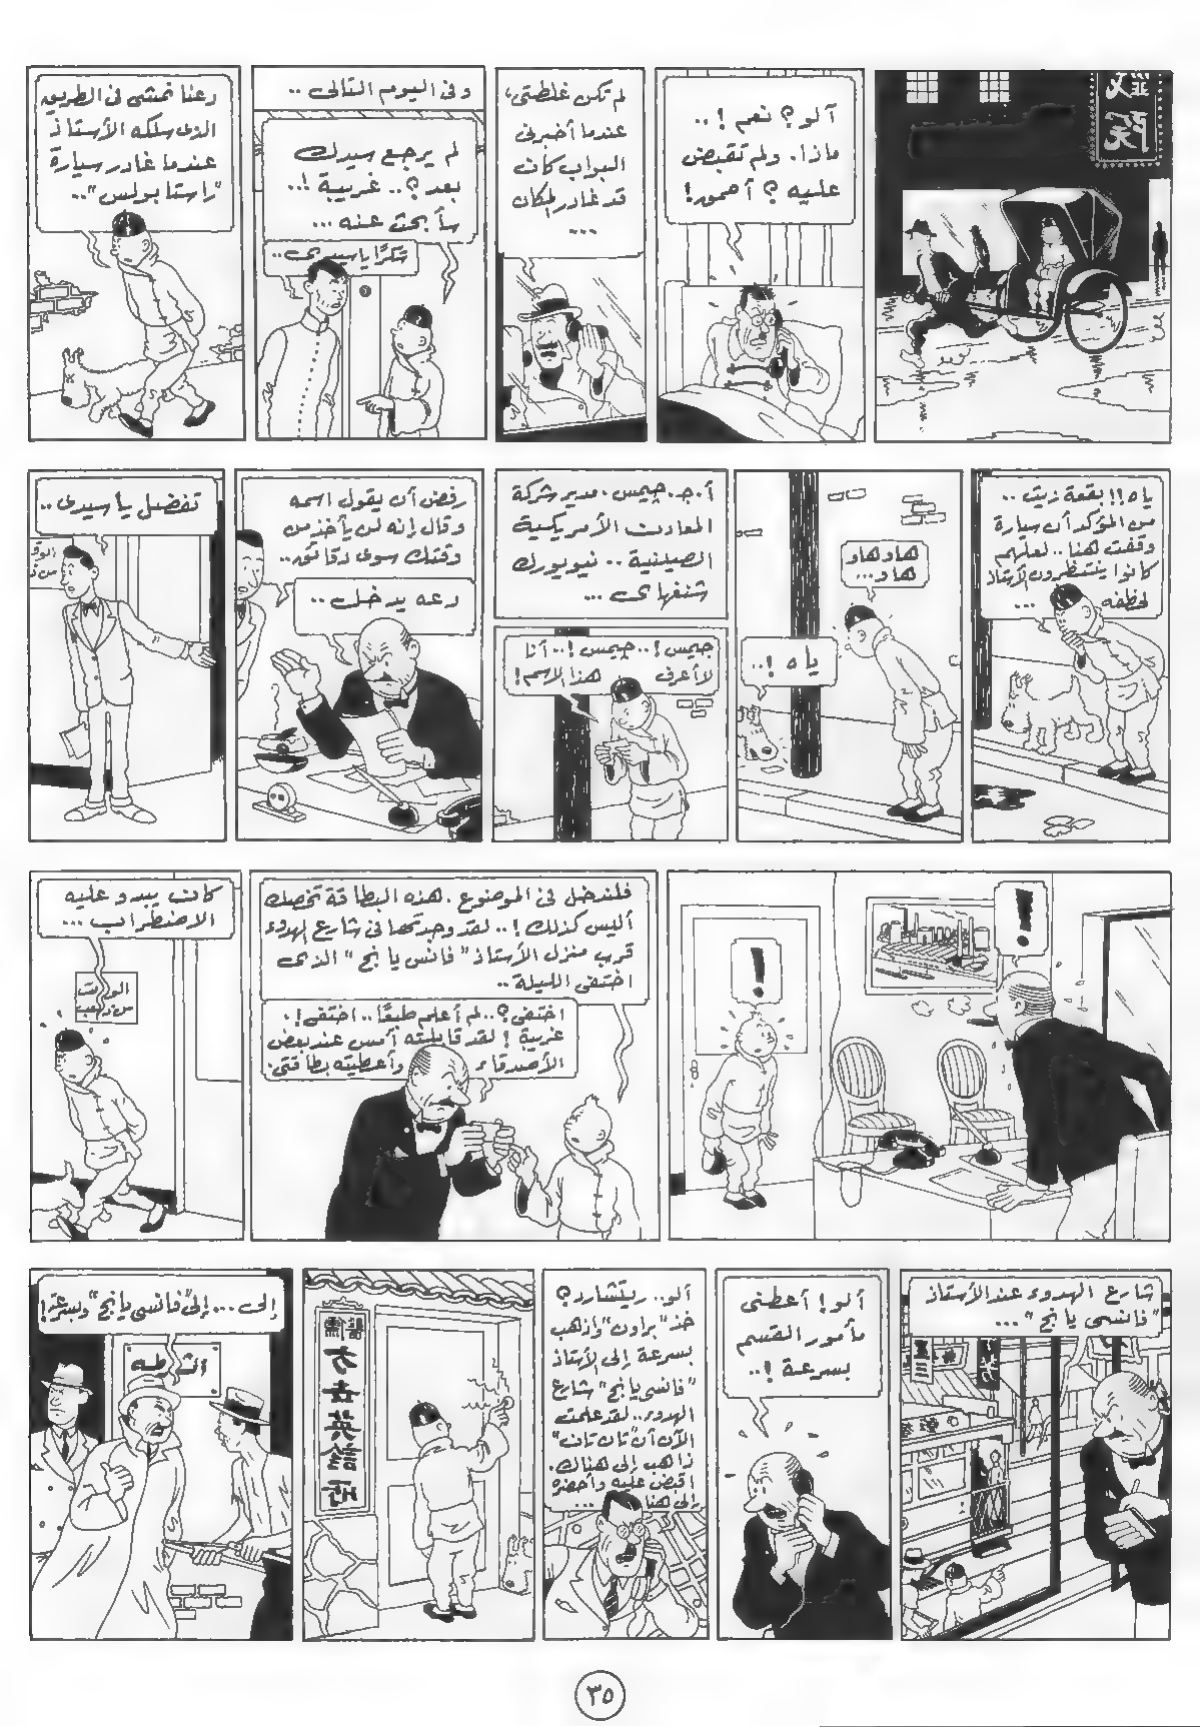 آلو؟ نعم!..
ماذا. ولم تقبض
عليه؟ أحمق!
لم تكن غلطتى،
عندما أخبرنى
البواب كان
قد غادر المكان
...
وفى اليوم التالى ..
لم يرجع سيدك
بعد؟.. غريبة !..
سأبحث عنه ...
شكرًا يا سيدى..
دعنا نمشى فى الطريق
الذى سلكه الأستاذ
عندما غادر سيارة
"راستابولس"..
ياه!! بقعة زيت ..
من المؤكد أن سيارة
وقفت هنا .. لعلهم
كانوا ينتظرون الأستاذ
لخطفه ...
هاو هاو
هاو...
ياه !..
أ. ج. جيمس. مدير شركة
المعادن الأمريكية
الصينية .. نيويورك
شنغهاى ...
جيمس!.. جيمس!.. أنا
لا أعرف هذا الاسم!
رفض أن يقول اسمه
وقال إنه لن يأخذ من
وقتك سوى دقائق..
دعه يدخل ..
تفضل يا سيدى ..
!
!
فلندخل فى الموضوع. هذه البطاقة تخصك
أليس كذلك!.. لقد وجدتها فى شارع الهدوء
قرب منزل الأستاذ "فانسى يانج" الذى
اختفى الليلة ..
اختفى؟.. لم أعلم طبعًا.. اختفى!.
غريبة! لقد قابلته أمس عند بعض
الأصدقاء وأعطيته بطاقتى.
كان يبدو عليه
الاضطراب ...
الوقت
من ذهب
شارع الهدوء عند الأستاذ
"فانسى يانج" ...
ألو! أعطنى
مأمور القسم
بسرعة !..
ألو.. ريتشارد؟
خذ "براون" واذهب
بسرعة إلى الأستاذ
"فانسى يانج" شارع
الهدوء.. لقد علمت
الآن أن "تان تان"
ذاهب إلى هناك.
اقبض عليه وأحضره
إلى هنا ...
إلى... إلى "فانسى يانج" وبسرعة!
الشرطة
٣٥